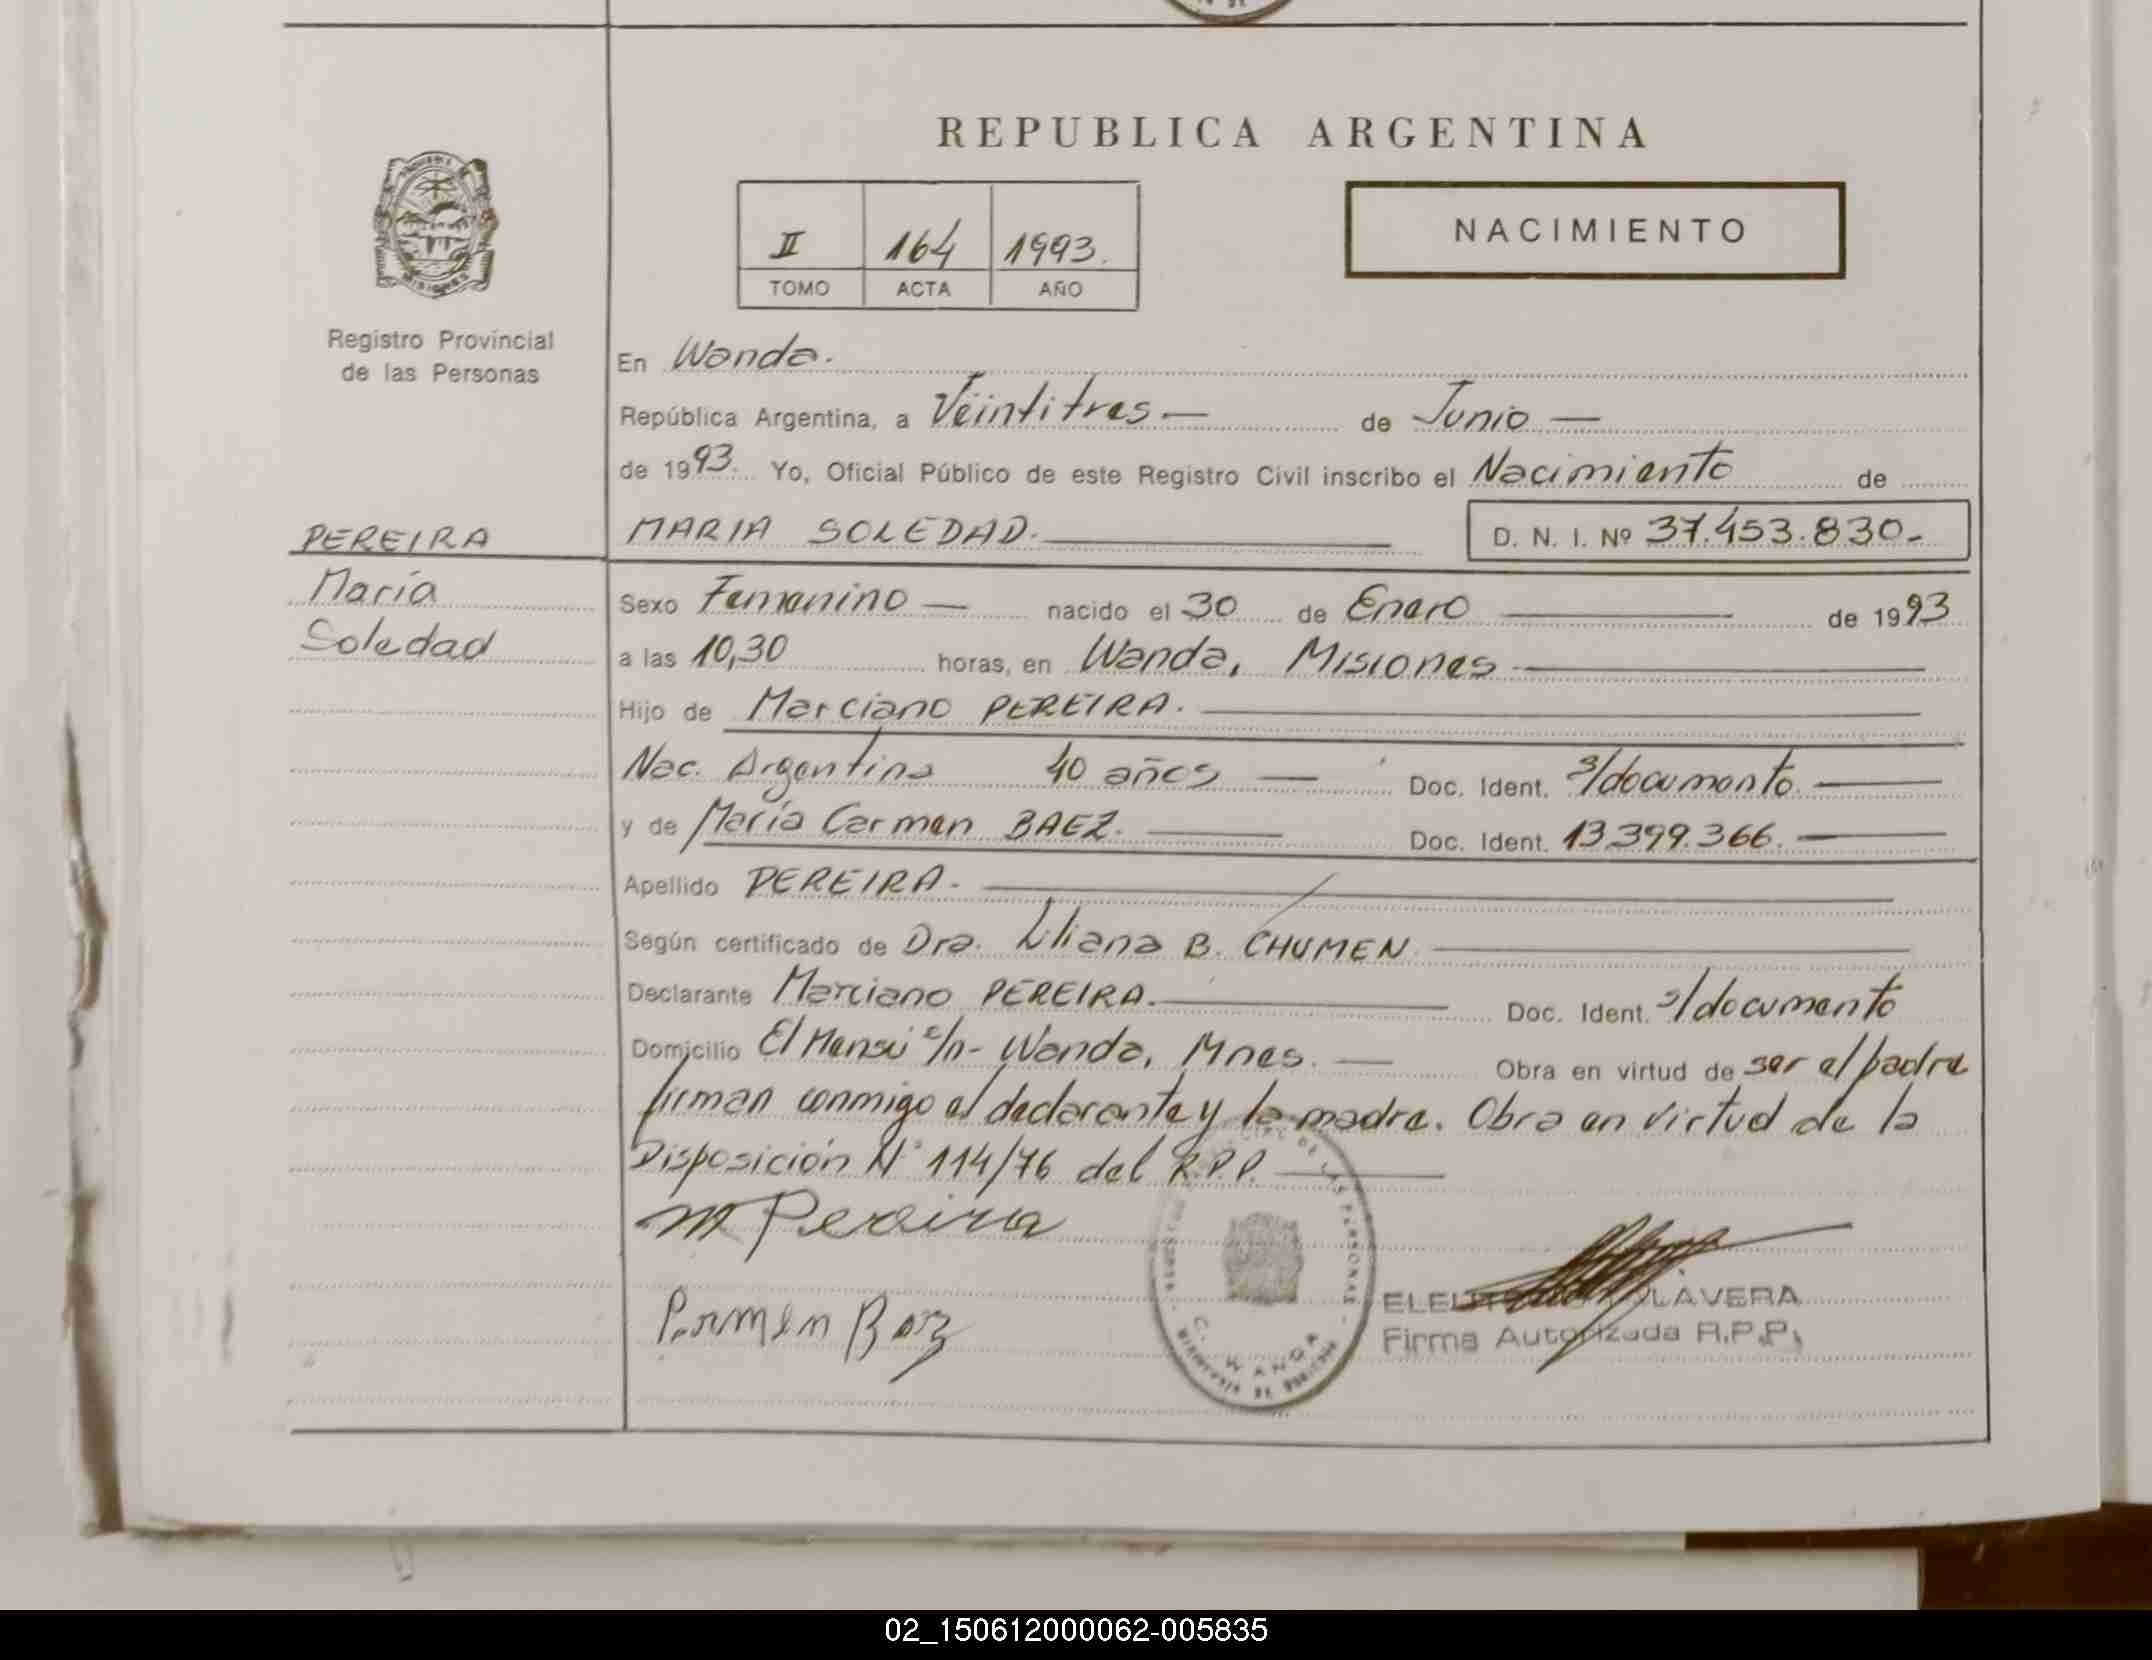 REPUBLICA ARGENTINA
II 164 1993.
TOMO ACTA AÑO
NACIMIENTO
MISIONES
Registro Provincial
de las Personas
En Wanda.
República Argentina, a Veintitres — de Junio —
de 1993. Yo, Oficial Público de este Registro Civil inscribo el Nacimiento de
PEREIRA
MARIA SOLEDAD. D. N. I. Nº 37.453.830-
María
Soledad
Sexo Femenino — nacido el 30 de Enero — de 1993
a las 10,30 horas, en Wanda, Misiones —
Hijo de Marciano PEREIRA. —
Nac. Argentina 40 años — Doc. Ident. s/documento. —
y de María Carmen BAEZ. — Doc. Ident. 13.399.366. —
Apellido PEREIRA. —
Según certificado de Dra. Liliana B. CHUMEN —
Declarante Marciano PEREIRA. — Doc. Ident. s/documento
Domicilio El Mensú s/n- Wanda, Mnes. — Obra en virtud de ser el padre
firman conmigo el declarante y la madre. Obra en virtud de la
Disposición Nº 114/76 del R.P.P. —
M Pereira
Carmen Baez
DE LAS PERSONAS
WANDA
MISIONES
LAVERA
Firma Autorizada R.P.P.
02_150612000062-005835